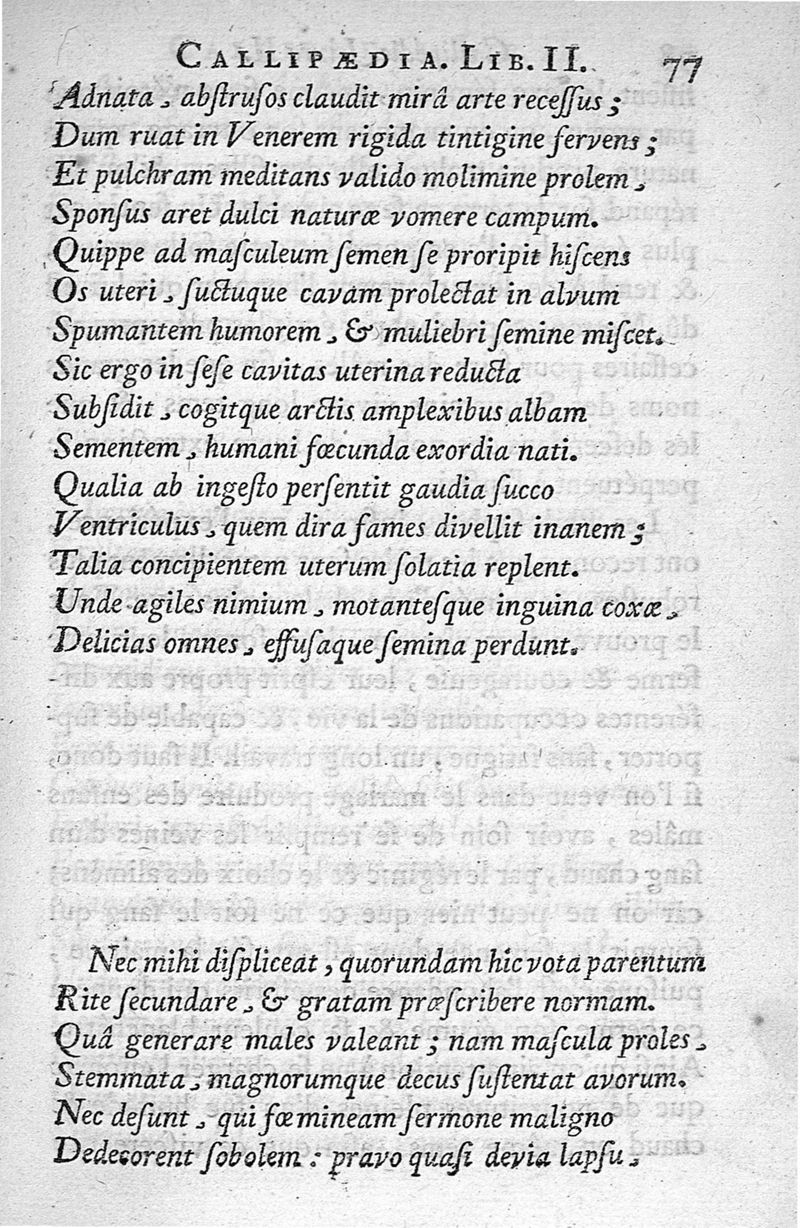 CALLIPÆDIA. LIB. II. 77
Adnata, abſtruſos claudit mirâ arte receſſus;
Dum ruat in Venerem rigida tintigine fervens;
Et pulchram meditans valido molimine prolem,
Sponſus aret dulci naturæ vomere campum.
Quippe ad maſculeum ſemen ſe proripit hiſcens
Os uteri, ſuctuque cavam prolectat in alvum
Spumantem humorem, & muliebri ſemine miſcet.
Sic ergo in ſeſe cavitas uterina reducta
Subſidit, cogitque arctis amplexibus albam
Sementem, humani fœcunda exordia nati.
Qualia ab ingeſto perſentit gaudia ſucco
Ventriculus, quem dira fames divellit inanem;
Talia concipientem uterum ſolatia replent.
Unde agiles nimium, motanteſque inguina coxæ,
Delicias omnes, effuſaque ſemina perdunt.
Nec mihi diſpliceat, quorundam hic vota parentum
Rite ſecundare, & gratam præſcribere normam.
Quâ generare males valeant; nam maſcula proles,
Stemmata, magnorumque decus ſuſtentat avorum.
Nec deſunt, qui fœmineam ſermone maligno
Dedecorent ſobolem: pravo quaſi devia lapſu,